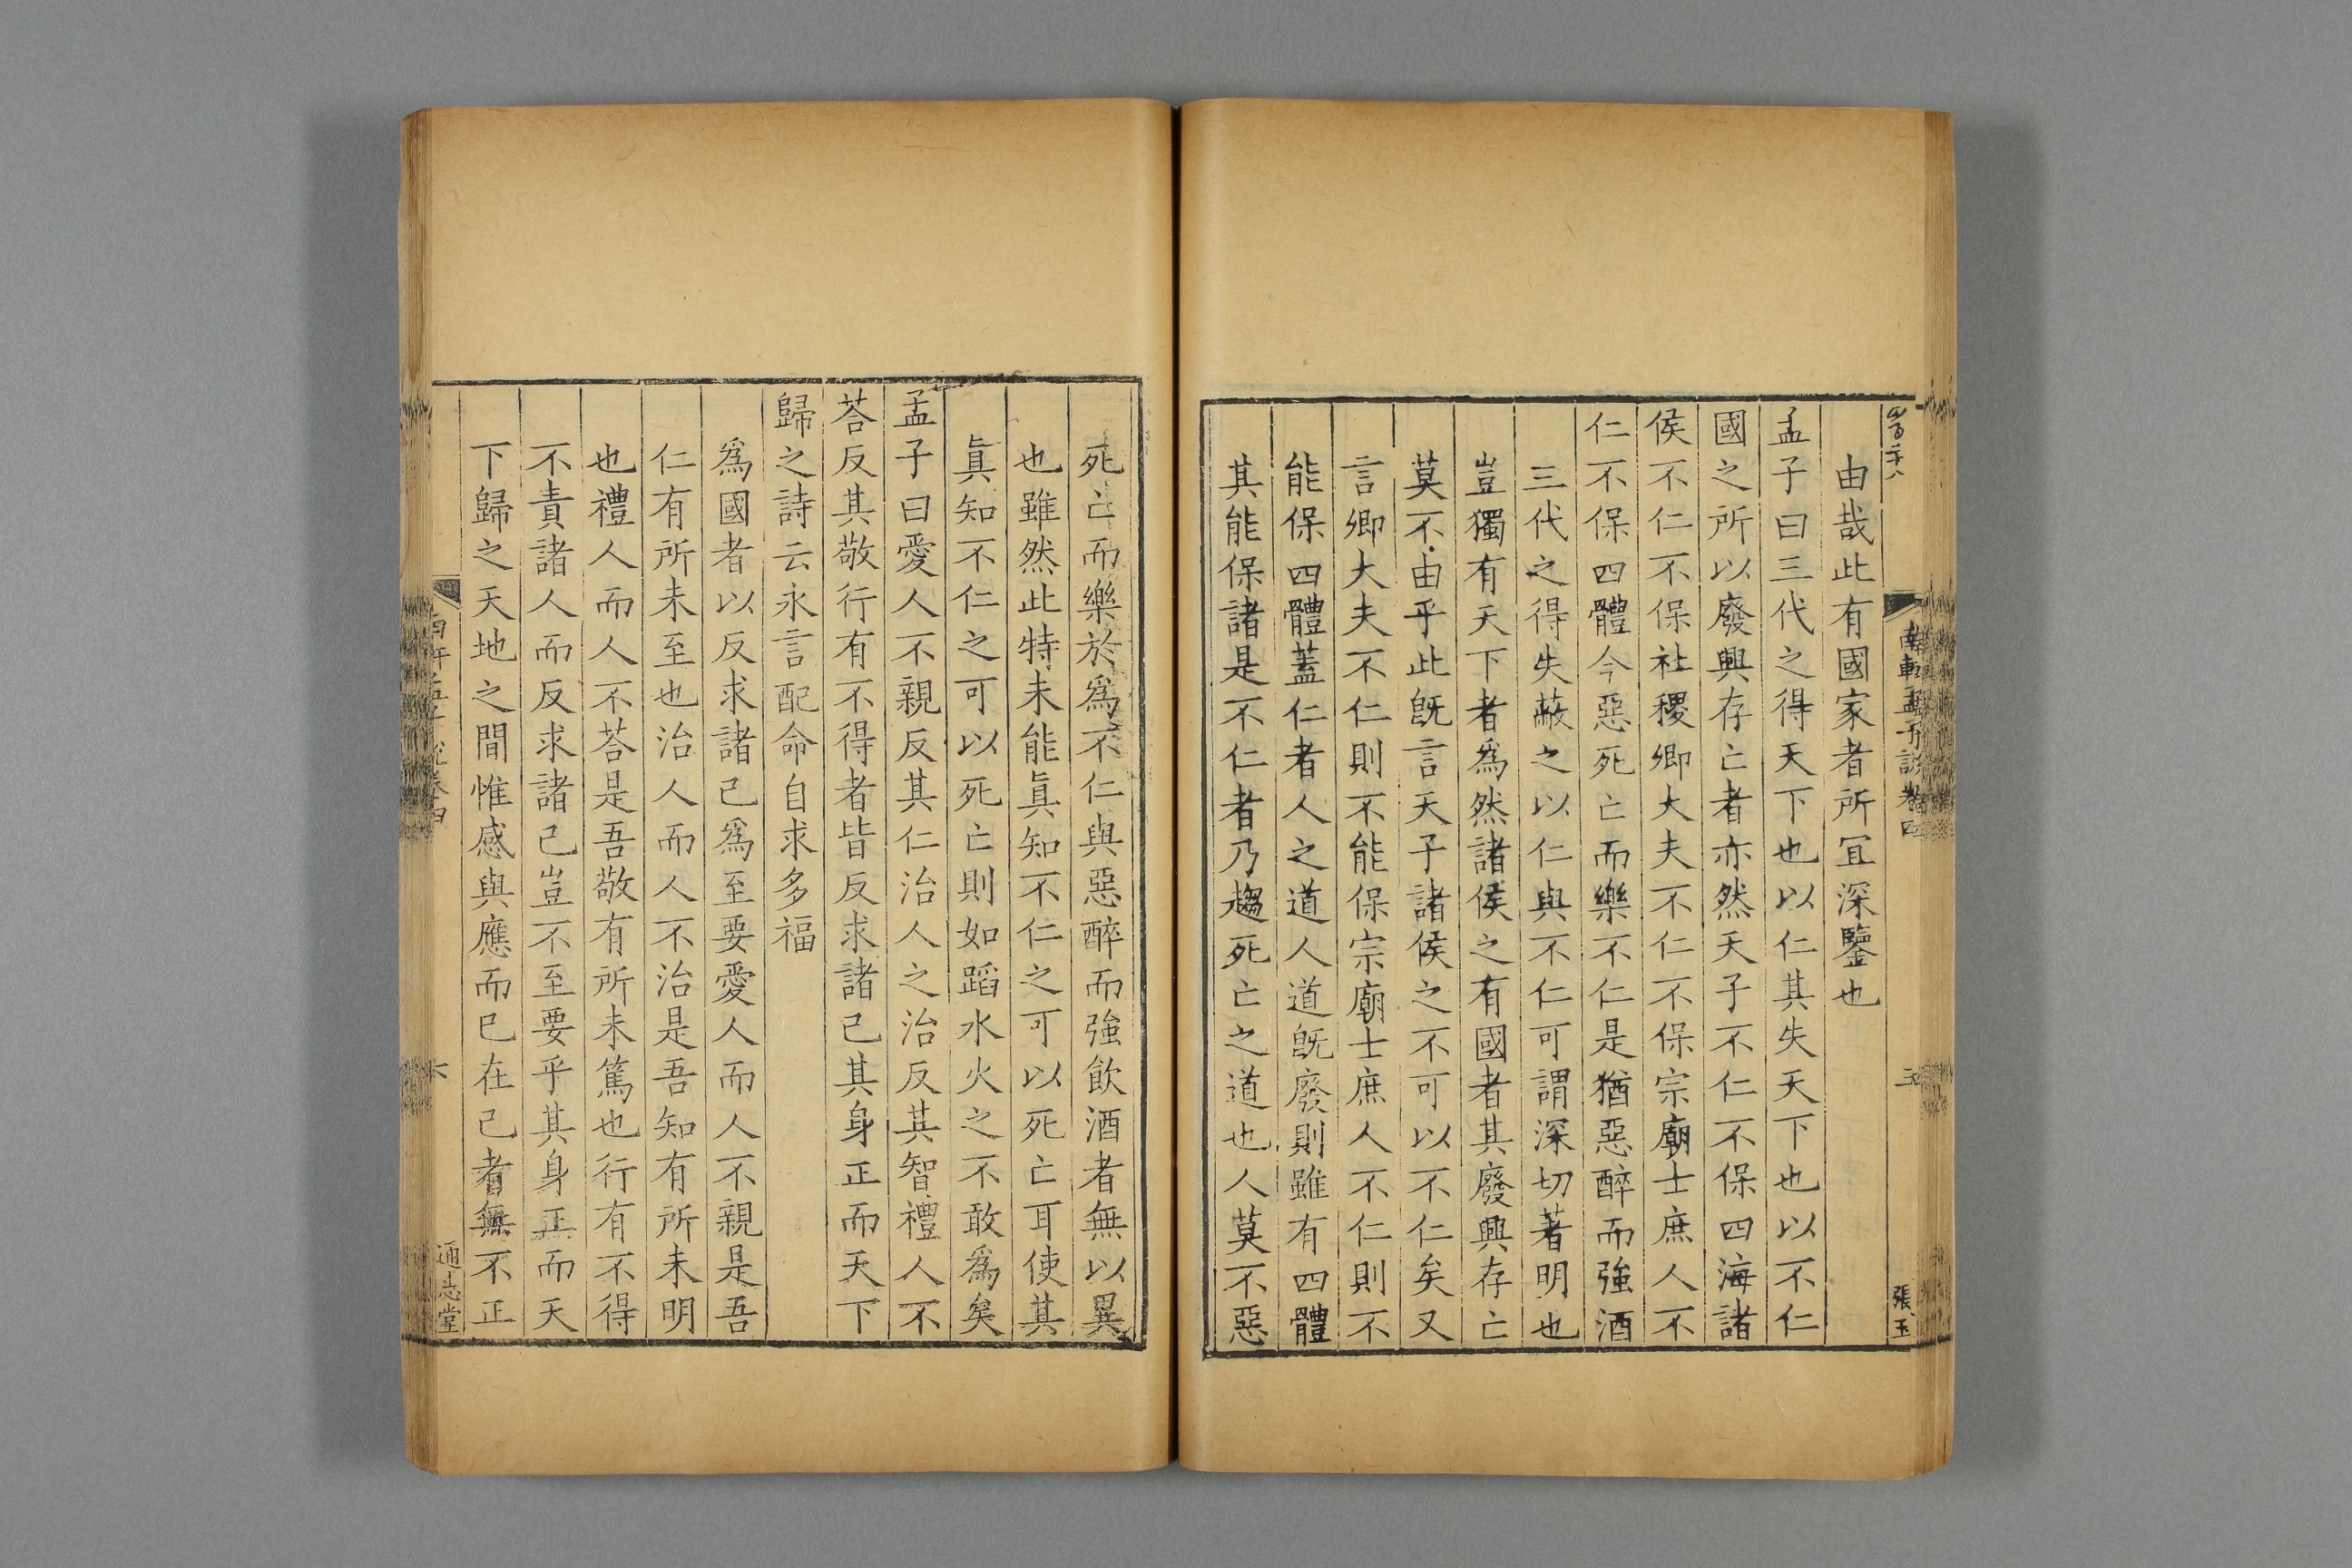 南軒孟子說卷四
張玉
由哉此有國家者所宜深鑒也
孟子曰三代之得天下也以仁其失天下也以不仁
國之所以廢興存亡者亦然天子不仁不保四海諸
侯不仁不保社稷卿大夫不仁不保宗廟士庶人不
仁不保四體今惡死亡而樂不仁是猶惡醉而強酒
三代之得失蔽之以仁與不仁可謂深切著明也
豈獨有天下者爲然諸侯之有國者其廢興存亡
莫不由乎此旣言天子諸侯之不可以不仁矣又
言卿大夫不仁則不能保宗廟士庶人不仁則不
能保四體蓋仁者人之道人道旣廢則雖有四體
其能保諸是不仁者乃趨死亡之道也人莫不惡
死亡而樂於爲不仁與惡醉而強飲酒者無以異
也雖然此特未能眞知不仁之可以死亡耳使其
眞知不仁之可以死亡則如蹈水火之不敢爲矣
孟子曰愛人不親反其仁治人之治反其智禮人不
荅反其敬行有不得者皆反求諸己其身正而天下
歸之詩云永言配命自求多福
爲國者以反求諸己爲至要愛人而人不親是吾
仁有所未至也治人而人不治是吾知有所未明
也禮人而人不荅是吾敬有所未篤也行有不得
不責諸人而反求諸己豈不至要乎其身正而天
下歸之天地之間惟感與應而已在己者無不正
六
通志堂